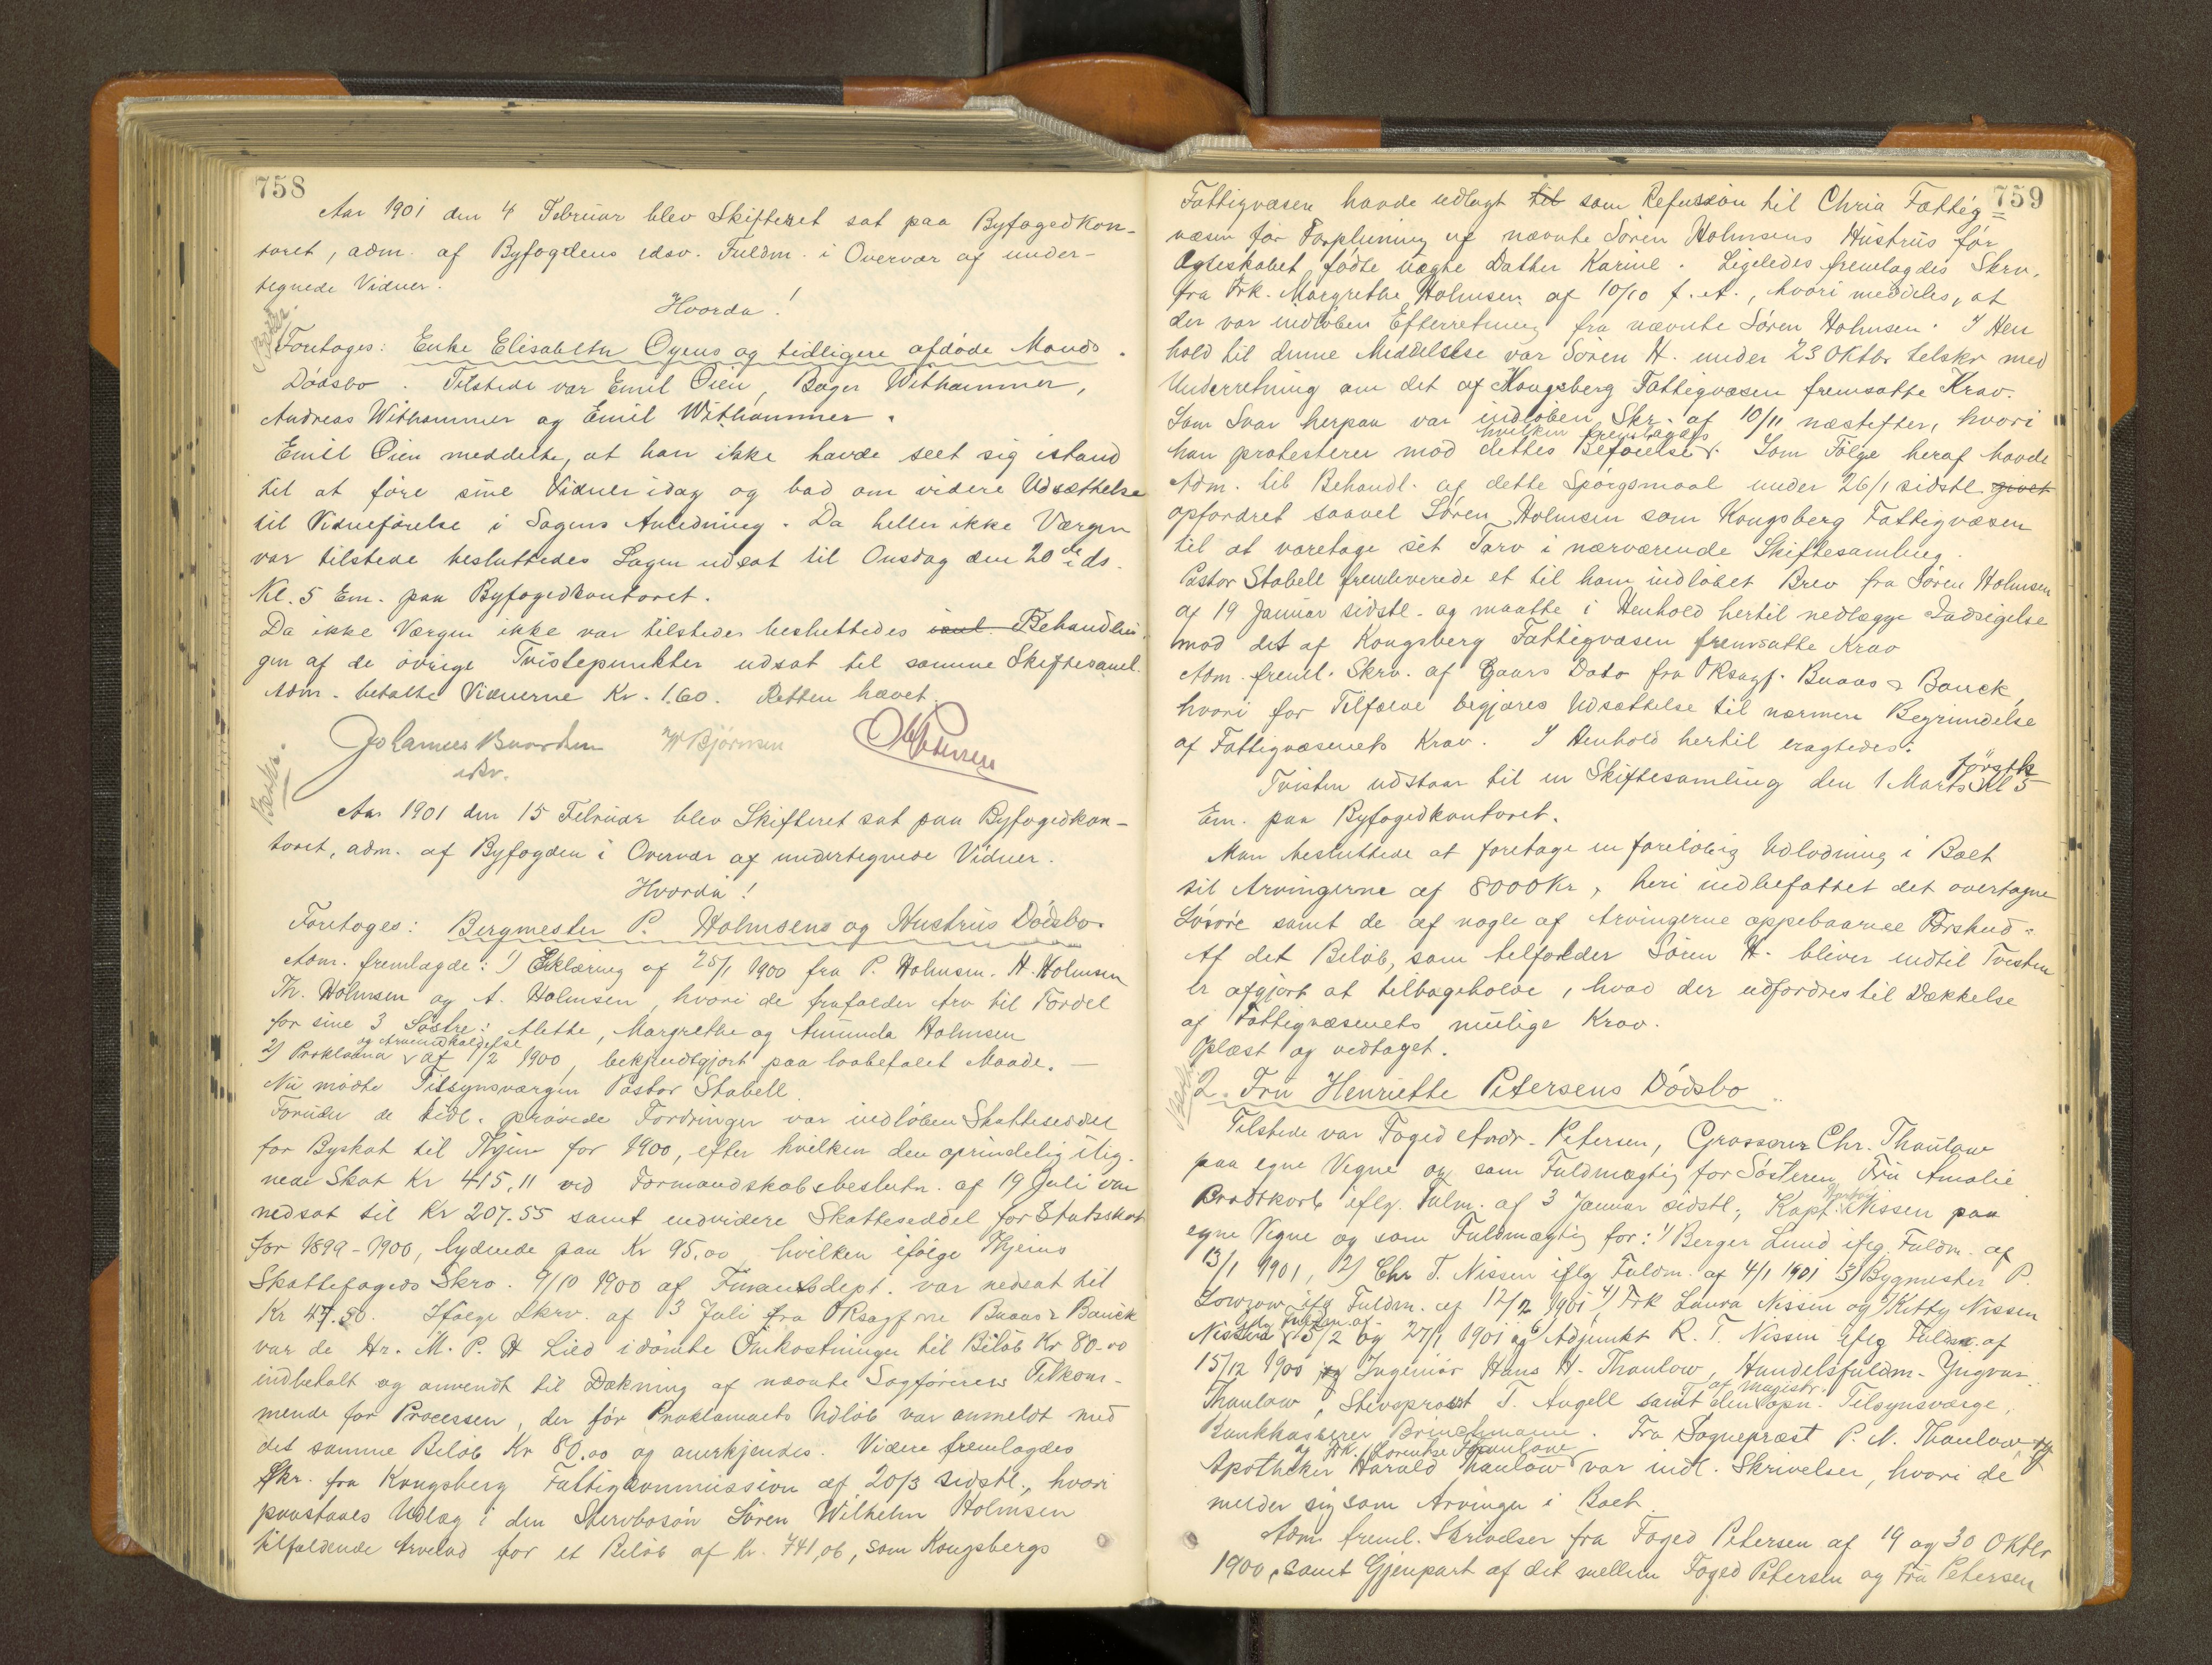 758
Aar 1901 den 4 Februar blev Skifteret sat paa Byfogedkon-
toret, adm. af Byfogdens edsv. Fuldm. i Overvær af under-
tegnede Vidner.
Hvorda!
Foretages: Enke Elisabeth Oyens og tidligere afdøde Mands
Dødsbo. Tilstede var Emil Øien, Bager Withammer,
Andreas Withammer og Emil Withammer.
Emil Øien meddelte, at han ikke havde seet sig istand
til at føre sine Vidner idag og bad om videre Udsættelse
til Vidneførelse i Sagens Anledning. Da heller ikke Værgen
var tilstede besluttedes Sagen udsat til Onsdag den 20de ds.
Kl. 5 Em. paa Byfogedkontoret.
Da ikke Værgen ikke var tilstede besluttedes Behandlin-
gen af de øvrige Tvistepunkter udsat til samme Skiftesaml.
Adm. betalte Vidnerne Kr. 1.60. Retten hævet.
Johannes Buarden H Bjørnsen O Pedersen
edsv.
Aar 1901 den 15 Februar blev Skifteret sat paa Byfogedkon-
toret, adm. af Byfogden i Overvær af undertegnede Vidner.
Hvorda!
Foretages: Bergmester P. Holmsens og Hustrus Dødsbo.
Adm. fremlagde: 1) Erklæring af 25/1 1900 fra P. Holmsen. H. Holmsen
Th. Holmsen og A. Holmsen, hvori de frafalder Arv til Fordel
for sine 3 Søstre: Alethe, Margrethe og Amunda Holmsen
og Arveindkaldelse
2) Proklama af 1/2 1900, bekjendtgjort paa lovbefalet Maade. —
Nu mødte Tilsynsværgen Pastor Stabell.
Foruden de tidl. prøvede Fordringer var indløben Skatteseddel
for Byskat til Thjem for 1900, efter hvilken den oprindelig ilig-
nede Skat Kr 415,11 ved Formandskabsbeslutn. af 19 Juli var
nedsat til Kr 207.55 samt endvidere Skatteseddel for Statsskat
for 1899-1900, lydende paa Kr 95.00 hvilken ifølge Thjems
Skattefogeds Skrv. 9/10 1900 af Finantsdept. var nedsat til
Kr 47.50. Ifølge Skrv. af 3 Juli fra ORsagførerne Buaas & Bauck
var de Hr. M. P. H Lied idømte Omkostninger til Beløb Kr 80.00
indbetalt og anvendt til Dækning af nævnte Sagføreres Tilkom-
mende for Processen, der før Proklamaets Udløb var anmeldt med
det samme Beløb Kr 80.00 og anerkjendes. Videre fremlagdes
Skr. fra Kongsberg Fattigkommission af 20/3 sidstl., hvori
paastaaes Udlæg i den Stervbosøn Søren Wilhelm Holmsen
tilfaldende Arvelod for et Beløb af Kr. 741,06, som Kongsbergs
759
Fattigvæsen havde udlagt til som Refusion til Chria Fattig=
væsen for Forpleining af nævnte Søren Holmsens Hustrus før
Ægteskabet fødte uægte Datter Karine. Ligeledes fremlagdes Skrv.
fra Frk. Margrethe Holmsen af 10/10 f. A., hvori meddeles, at
der var indløben Efterretning fra nævnte Søren Holmsen. I Hen
hold til denne Meddelelse var Søren H. under 23 Oktbr tilskr med
Underretning om det af Kongsberg Fattigvæsen fremsatte Krav.
Som Svar herpaa var indløben Skr. af 10/11 næstefter, hvori
hvilken fremlagdes
han protesterer mod dettes Beføielse. Som Følge heraf havde
Adm. til Behandl. af dette Spørgsmaal under 26/1 sidstl. givet
opfordret saavel Søren Holmsen som Kongsberg Fattigvæsen
til at varetage sit Tarv i nærværende Skiftesamling.
Pastor Stabell fremleverede et til ham indløbet Brev fra Søren Holmsen
af 19 Januar sidstl. og maatte i Henhold hertil nedlægge Indsigelse
mod det af Kongsberg Fattigvæsen fremsatte Krav
Adm. freml. Skrv. af Gaars Dato fra ORsagf. Buaas & Bauck,
hvori for Tilfælde begjæres Udsættelse til nærmere Begrundelse
af Fattigvæsenets Krav. I Henhold hertil eragtedes:
førstk
Tvisten udstaar til en Skiftesamling den 1 Marts Kl 5
Em. paa Byfogedkontoret.
Man besluttede at foretage en foreløbig Udlodning i Boet
til Arvingerne af 8000 Kr, heri indbefattet det overtagne
Løsøre samt de af nogle af Arvingerne oppebaarne Forskud.
Af det Beløb, som tilfalder Søren H. bliver indtil Tvisten
er afgjort at tilbageholde, hvad der udfordres til Dækkelse
af Fattigvæsenets mulige Krav.
Oplæst og vedtaget.
2. Fru Henriette Petersens Dødsbo
Tilstede var Foged Andr. Petersen, Grosserer Chr. Thaulow
paa egne Vegne og som Fuldmægtig for Søsteren Fru Amalie
Brodtkorb iflg. Fulm. af 3 Januar sidstl., Kapt. Nissen paa
egne Vegne og som Fuldmægtig for: 1) Berger Lund iflg. Fuldm. af
13/1 1901, 2) Chr T. Nissen iflg Fuldm. af 4/1 1901 3) Bygmester P.
Lowzow iflg Fuldm. af 12/2 1901, 4) Frk Laura Nissen og 5) Kitty Nissen
iflg Fuldm. af
Nissen 15/2 og 27/1 1901 og 6) Adjunkt R. T. Nissen iflg Fuldm. af
15/12 1900 og Ingeniør Hans H. Thaulow, Handelsfuldm. Yngvar
af Magistr.
Thaulow, Stivsprovst T. Angell samt den opn. Tilsynsværge,
Bankkasserer Brinchmann. Fra Sognepræst P. N. Thaulow og
og Frk. Lorentze Thaulow
Apotheker Harald Thaulow var indl. Skrivelser, hvori de
melder sig som Arvinger i Boet.
Adm freml. Skrivelser fra Foged Petersen af 19 og 30 Oktbr
1900, samt Gjenpart af det mellem Foged Petersen og Fru Petersen